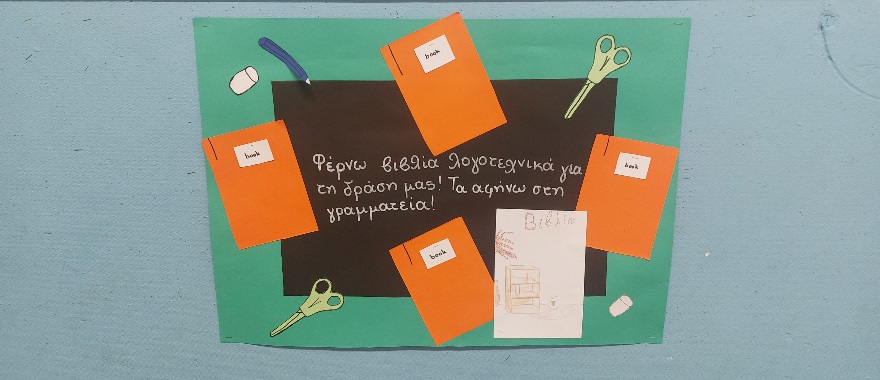 book
book
book
Φέρνω βιβλία λογοτεχνικά για
τη δράση μας! Τα αφήνω στη
γραμματεία!
book
Βιβλία